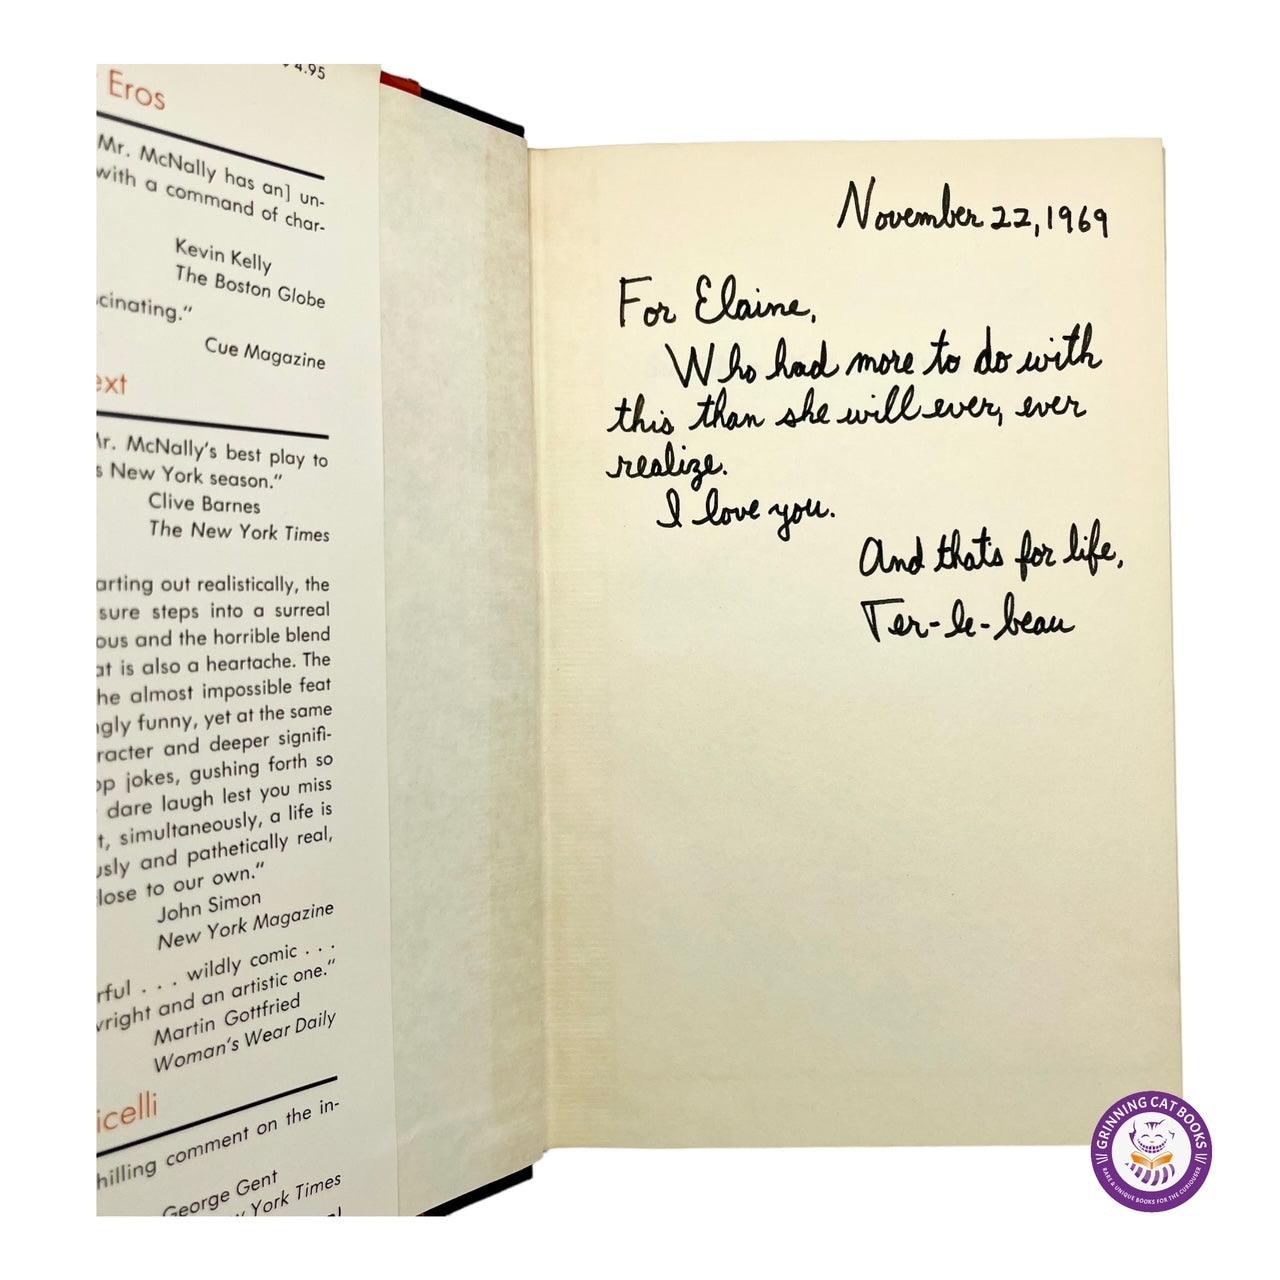 4.95
Eros
Mr. McNally has an] un-
with a command of char-
Kevin Kelly
The Boston Globe
cinating."
Cue Magazine
ext
Mr. McNally's best play to
s New York season."
Clive Barnes
The New York Times
arting out realistically, the
sure steps into a surreal
ous and the horrible blend
at is also a heartache. The
he almost impossible feat
ngly funny, yet at the same
racter and deeper signifi-
op jokes, gushing forth so
dare laugh lest you miss
t, simultaneously, a life is
usly and pathetically real,
lose to our own."
John Simon
New York Magazine
rful . . . wildly comic . . .
wright and an artistic one."
Martin Gottfried
Woman's Wear Daily
icelli
hilling comment on the in-
George Gent
York Times
November 22, 1969
For Elaine,
Who had more to do with
this than she will ever, ever
realize.
I love you.
And that's for life,
Ter-le-beau
GRINNING CAT BOOKS
RARE & UNIQUE BOOKS FOR THE CURIOUSER